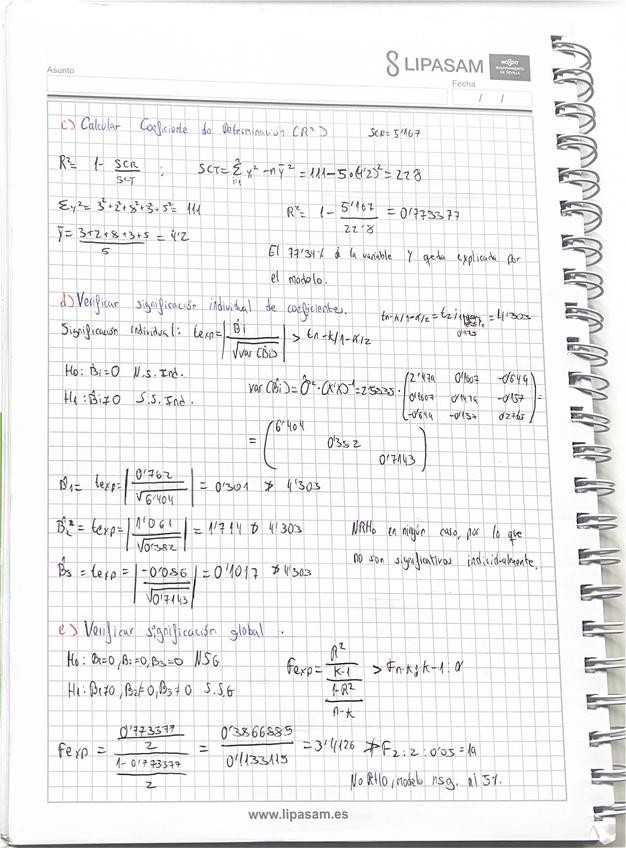 LIPASAM
NO8DO
AYUNTAMIENTO DE SEVILLA
Asunto
Fecha
/ /
c) Calcular Coeficiente de Determinación (R²) SCR= 5'167
R²= 1 - SCR/SCT ; SCT= Σ y² - nȳ² = 111 - 5·(4'2)² = 22'8
Σy²= 3²+2²+8²+3²+5²= 111
R²= 1 - 5'167/22'8 = 0'773377
ȳ= 3+2+8+3+5/5 = 4'2
El 77'34% d la variable Y queda explicada por
el modelo.
d) Verificar significación individual de coeficientes.
tn-k/1-α/2 = t2; 0'975 = 4'303
Significación Individual: texp= |β̂i/√var(β̂i)| > tn-k/1-α/2
H0: βi=0 N.S. Ind.
H1: βi≠0 S.S. Ind.
var(β̂i)= σ̂²·(X'X)⁻¹= 2'5835·
(2'479 0'1607 -0'649
0'1607 0'1479 -0'157
-0'649 -0'157 0'2765) =
= (6'404
0'382
0'7143)
β̂1= texp= |0'762/√6'404| = 0'301 ≯ 4'303
β̂2= texp= |1'061/√0'382| = 1'714 ≯ 4'303
NRH0 en ningún caso, por lo que
no son significativos individualmente.
β̂3 = texp = |-0'086/√0'7143| = 0'1017 ≯ 4'303
e) Verificar significación global.
H0: β1=0, β2=0, β3=0 NSG
Fexp= R²/k-1 / 1-R²/n-k > Fn-k; k-1; α
H1: β1≠0, β2≠0, β3≠0 S.SG
Fexp = 0'773377/2 / 1-0'773377/2 = 0'3866885/0'1133115 = 3'4126 ≯ F2; 2; 0'05 = 19
No RH0, modelo nsg. al 5%.
www.lipasam.es